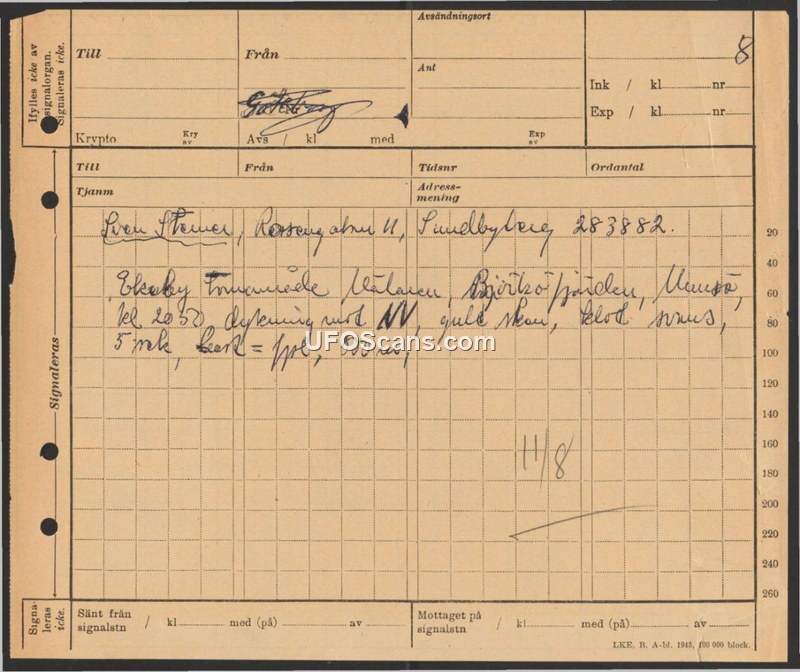 Ifylles icke av
signalorgan.
Signaleras icke.
Till
Från
Avsändningsort
Ant
8
Ink / kl nr
Exp / kl nr
Krypto
Kry
av
Avs / kl med
Exp
av
Till
Från
Tidsnr
Ordantal
Tjanm
Adress-
mening
Sven 11, Sundbyberg 283882.
20
40
Ekeby Mälaren, Björköfjärden, Munsö,
60
kl 2050 dykning mot NV, gult sken,
80
5 sek,
100
UFOScans.com
120
140
11/8
160
180
200
220
240
260
Signaleras
Signa-
leras
icke.
Sänt från
signalstn / kl med (på) av
Mottaget på
signalstn / kl med (på) av
LKE. B. A-bl. 1945, 100 000 block.